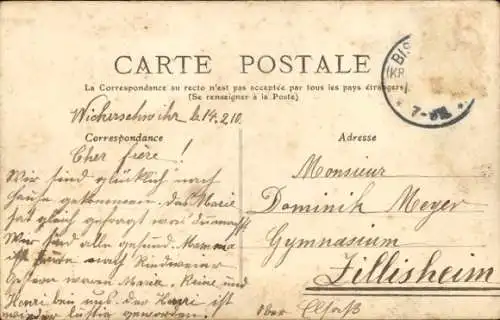 CARTE POSTALE
La Correspondance au recto n'est pas acceptée par tous les pays étrangers
(Se renseigner à la Poste)
Wickerschwihr le 14.2.10.
Correspondance
Adresse
Cher frère!
Wir sind glücklich nach
Hause gekommen. Das Marie
hat gleich gefragt wo du
Wir sind alle gesund. Mamma
ist heute nach Riedweier
Gestern waren Marie, Reine und
Henri bei uns. Der Henri ist
wieder lustig geworden.
Monsieur
Dominik Meyer
Gymnasium
Zillisheim
Ober Elsaß
BIS
(KR
7-8